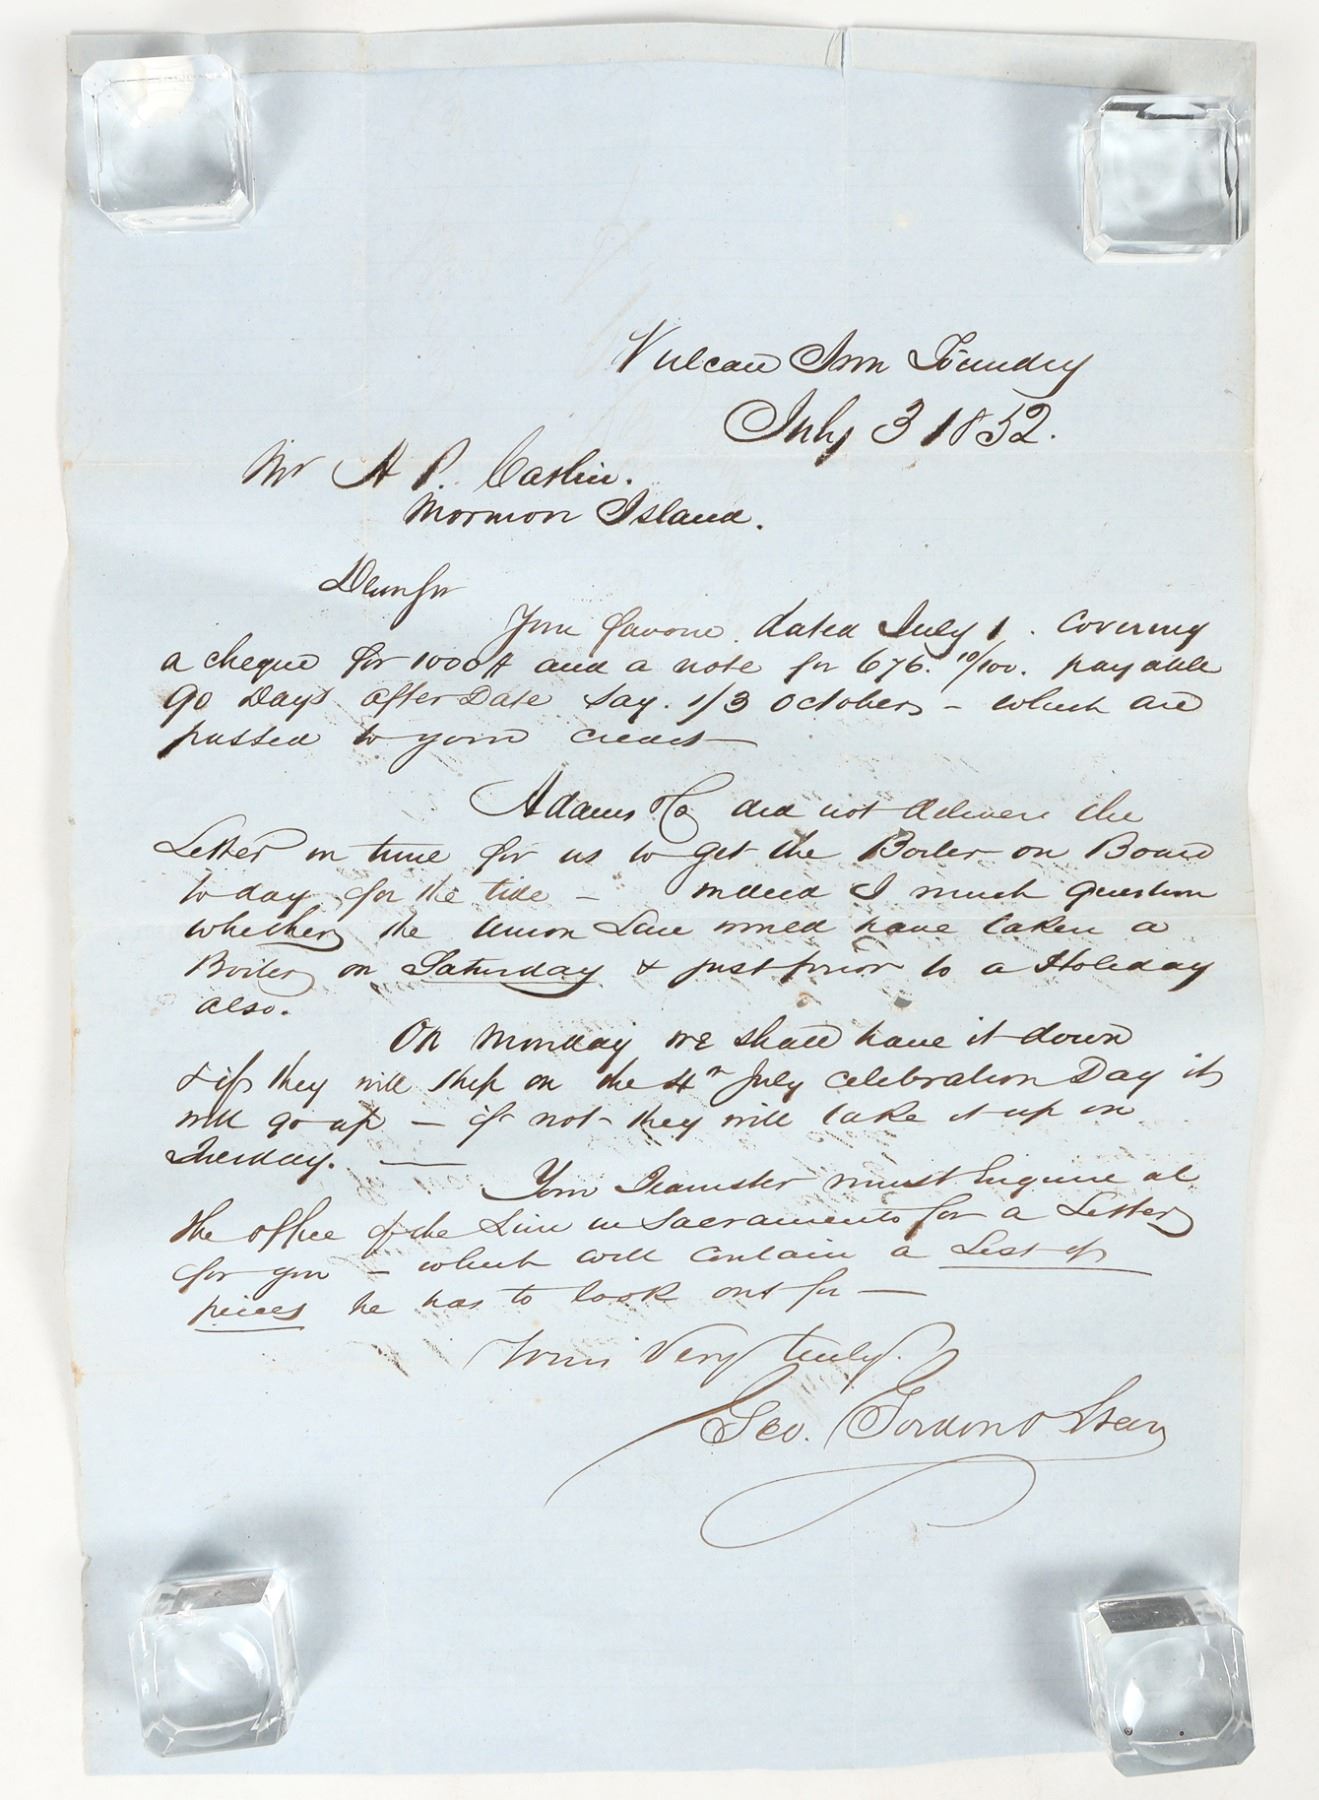 Vulcan Iron Foundry
July 3 1852.
Mr A P. Catlin.
Mormon Island.
Dear Sir
Your favour dated July 1. covering
a cheque for 1000$ and a note for 676. 10/100. payable
90 Days after Date say. 1/3 October, - which are
passed to your credit —
Adams & Co did not deliver the
Letter in time for us to get the Boiler on Board
to day for the tide - indeed I much question
whether the Union Line would have taken a
Boiler on Saturday & just prior to a Holiday
also.
On Monday we shall have it down
& if they will ship on the 4th July celebration Day it
will go up — if not - they will take it up on
Tuesday. —
Your Teamster must Enquire at
the office of the Line in Sacramento for a Letter
for you - which will contain a List of
pieces he has to look out for —
Yours Very truly.
Geo. Gordon &